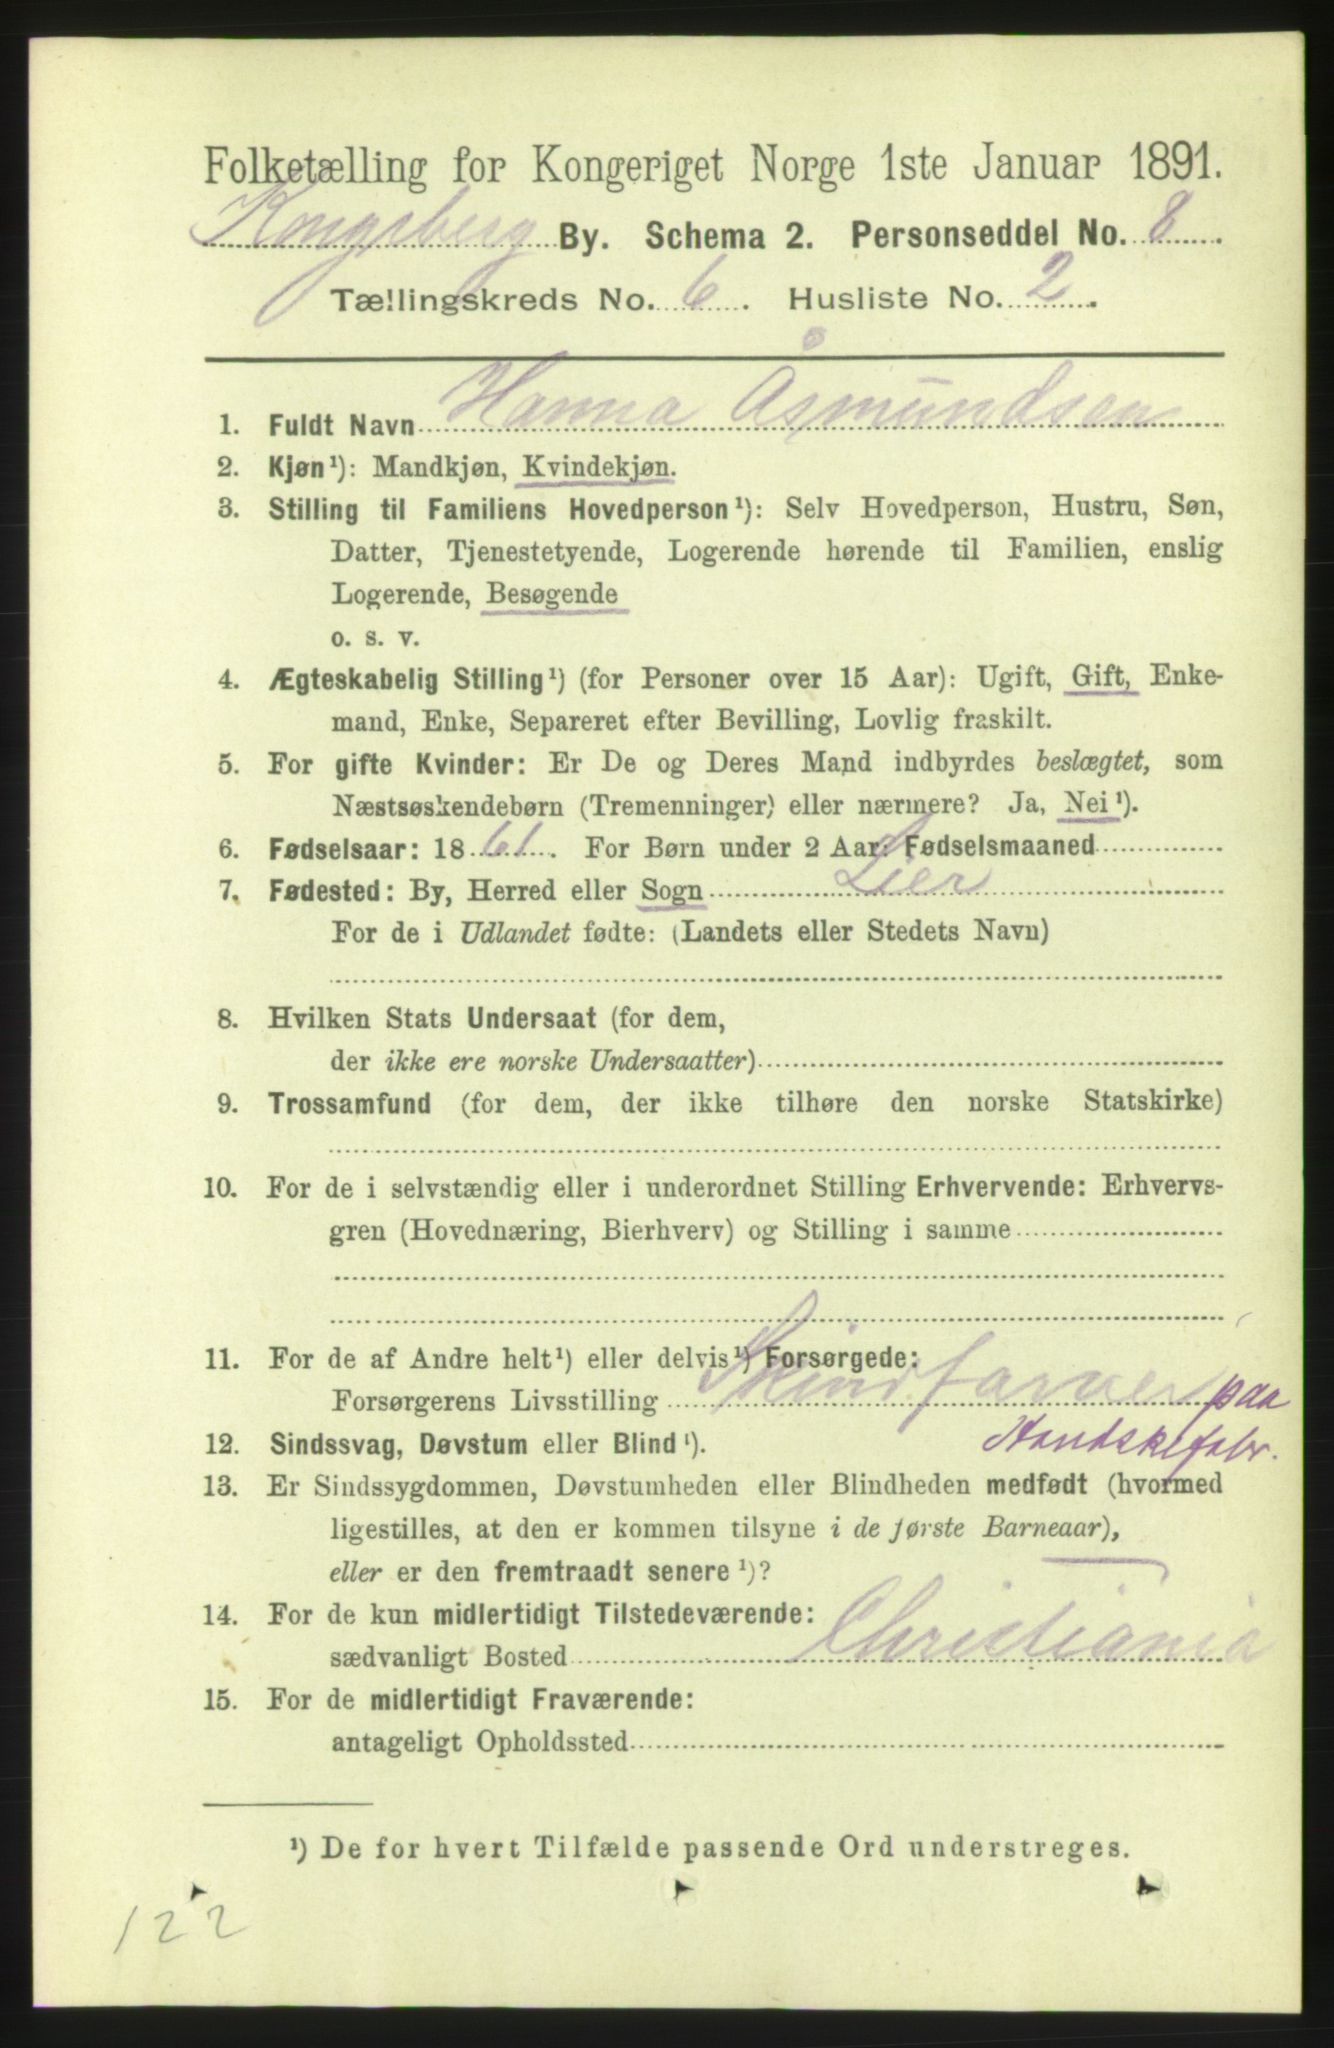 Folketælling for Kongeriget Norge 1ste Januar 1891.
Kongsberg By. Schema 2. Personseddel No. 8.
Tællingskreds No. 6. Husliste No. 2.
1. Fuldt Navn Hanna Åsmundsen
2. Kjøn¹): Mandkjøn, Kvindekjøn.
3. Stilling til Familiens Hovedperson¹): Selv Hovedperson, Hustru, Søn,
Datter, Tjenestetyende, Logerende hørende til Familien, enslig
Logerende, Besøgende
o. s. v.
4. Ægteskabelig Stilling¹) (for Personer over 15 Aar): Ugift, Gift, Enke-
mand, Enke, Separeret efter Bevilling, Lovlig fraskilt.
5. For gifte Kvinder: Er De og Deres Mand indbyrdes beslægtet, som
Næstsøskendebørn (Tremenninger) eller nærmere? Ja, Nei¹).
6. Fødselsaar: 1861. For Børn under 2 Aar: Fødselsmaaned
7. Fødested: By, Herred eller Sogn Lier
For de i Udlandet fødte: (Landets eller Stedets Navn)
8. Hvilken Stats Undersaat (for dem,
der ikke ere norske Undersaatter)
9. Trossamfund (for dem, der ikke tilhøre den norske Statskirke)
10. For de i selvstændig eller i underordnet Stilling Erhvervende: Erhvervs-
gren (Hovednæring, Bierhverv) og Stilling i samme
11. For de af Andre helt¹) eller delvis¹) Forsørgede:
Forsørgerens Livsstilling Skindfarver paa
12. Sindssvag, Døvstum eller Blind¹). Handskefabr.
13. Er Sindssygdommen, Døvstumheden eller Blindheden medfødt (hvormed
ligestilles, at den er kommen tilsyne i de første Barneaar),
eller er den fremtraadt senere¹)?
14. For de kun midlertidigt Tilstedeværende:
sædvanligt Bosted Christiania
15. For de midlertidigt Fraværende:
antageligt Opholdssted
¹) De for hvert Tilfælde passende Ord understreges.
122